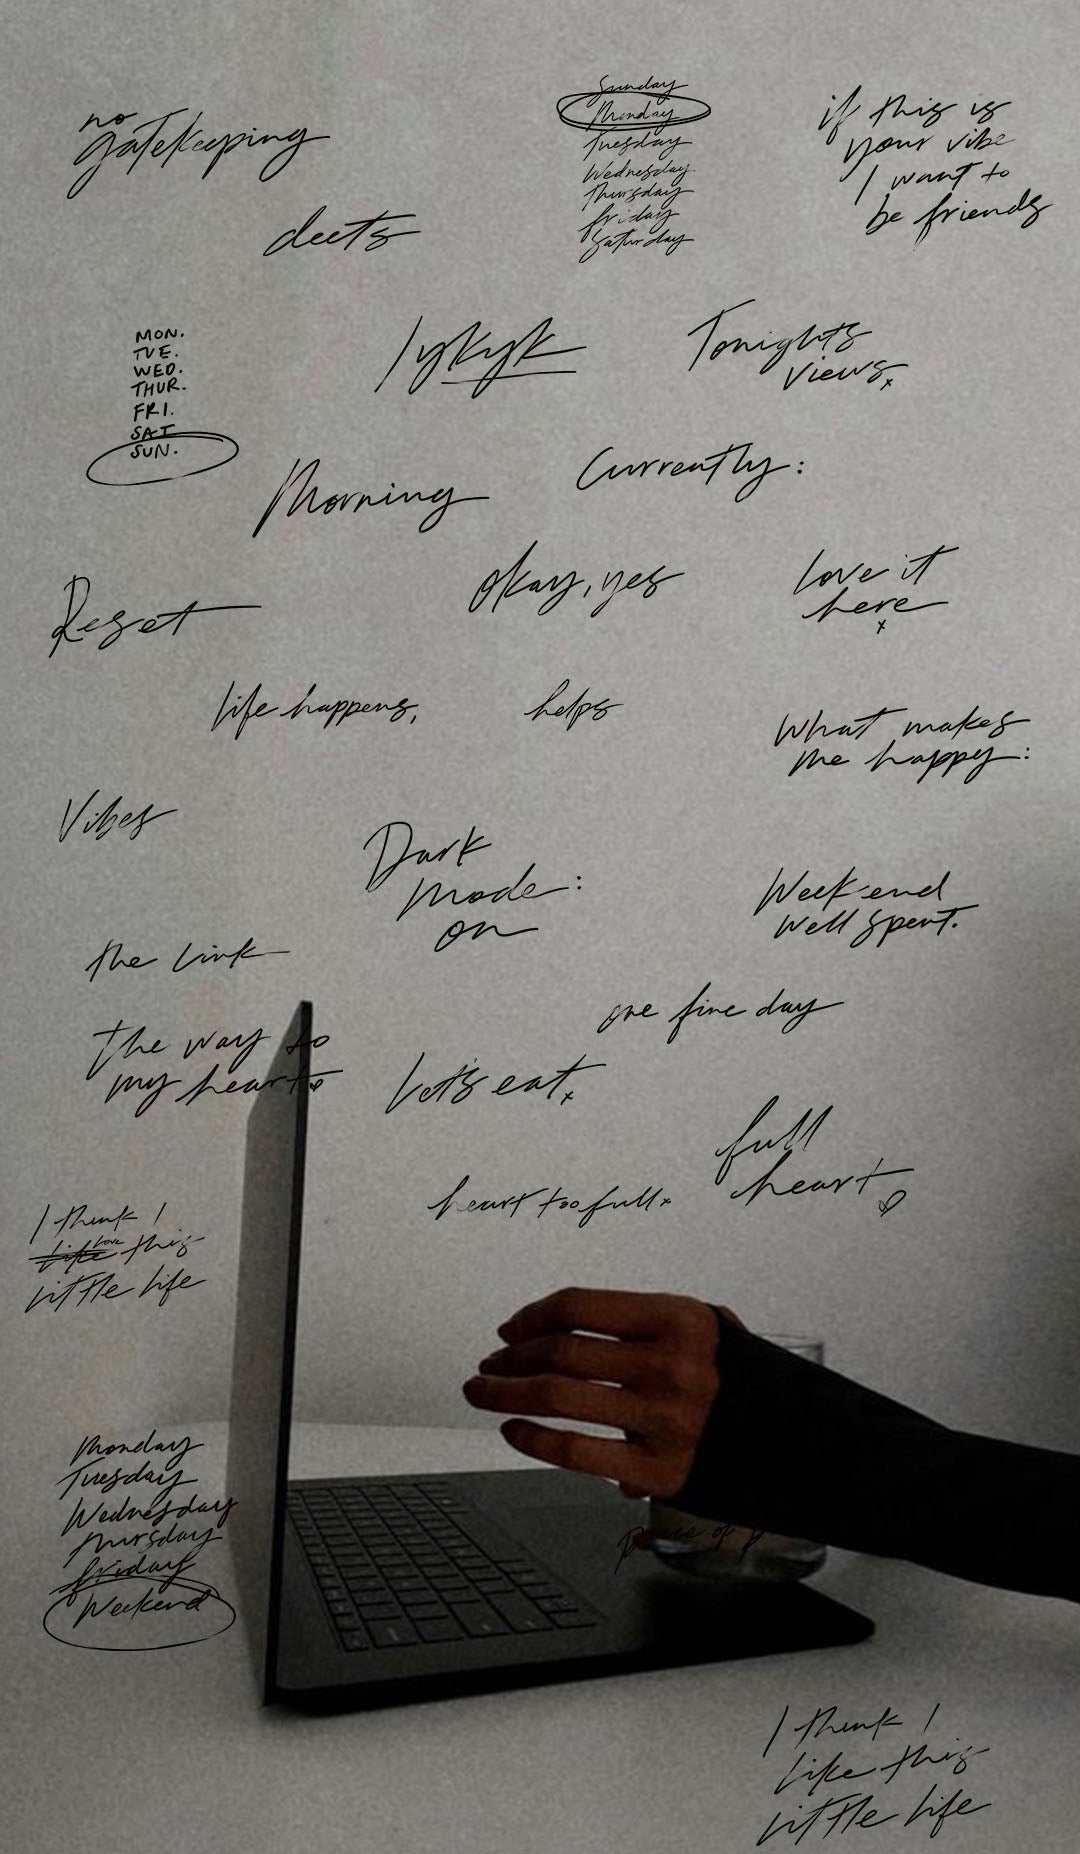 no
gatekeeping
deets
Sunday
Monday
Tuesday
Wednesday
Thursday
friday
Saturday
if this is
your vibe
I want to
be friends
MON.
TUE.
WED.
THUR.
FRI.
SAT
SUN.
Iykyk
Tonights
views x
Morning
Currently:
Reset
Okay, yes
love it
here
x
life happens,
helps
What makes
me happy:
Vibes
Dark
mode:
on
Weekend
well spent.
the link
one fine day
the way to
my heart
Let's eat x
full
heart
heart too full x
I think I
like love this
little life
Monday
Tuesday
Wednesday
Thursday
friday
Weekend
of
I think I
like this
little life